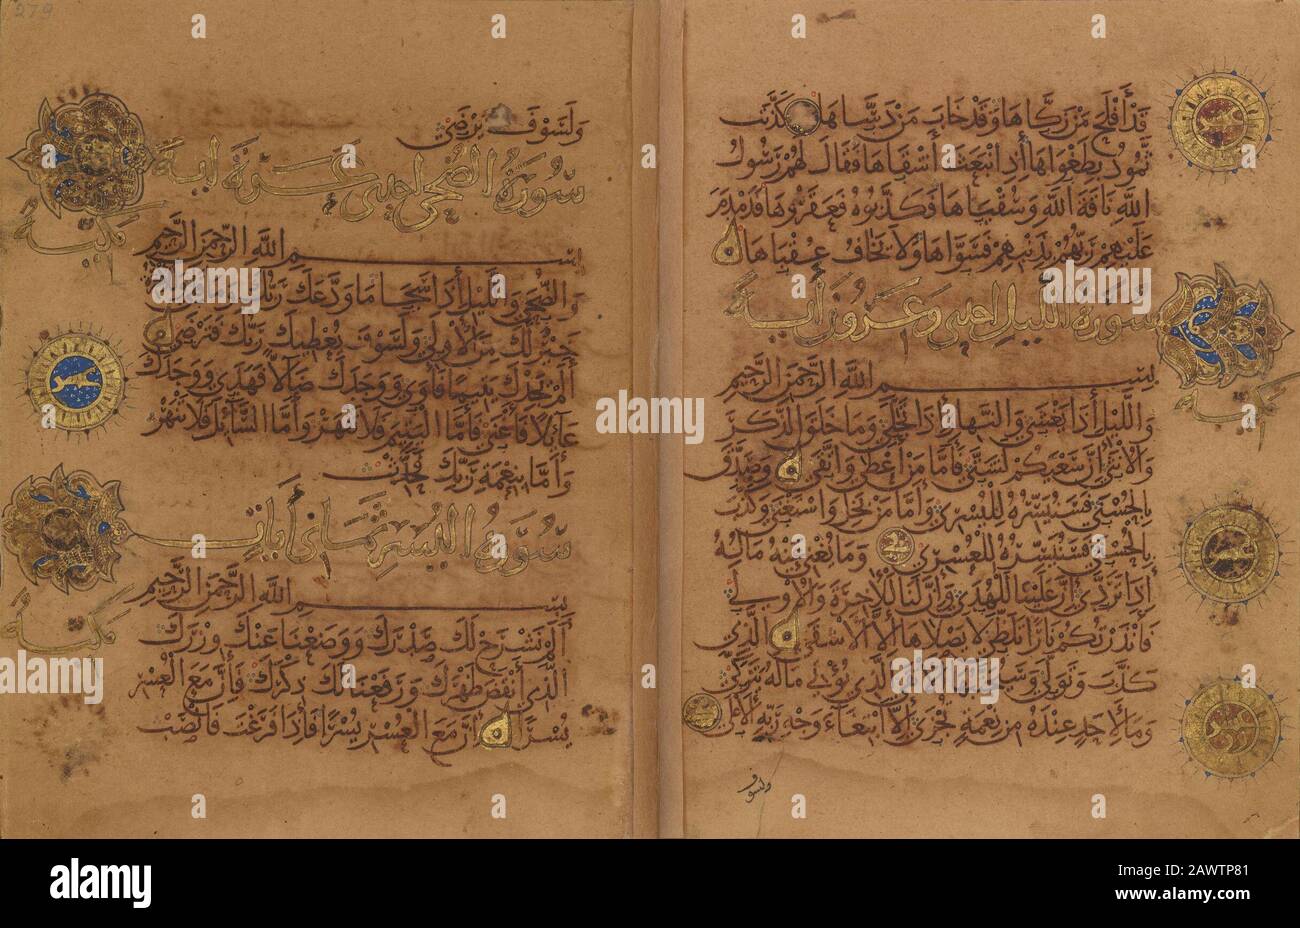 قَدْ أَفْلَحَ مَنْ زَكَّاهَا وَقَدْ خَابَ مَنْ دَسَّاهَا كَذَّبَت
ثَمُودُ بِطَغْوَاهَا إِذِ انْبَعَثَ أَشْقَاهَا فَقَالَ لَهُمْ رَسُولُ
اللَّهِ نَاقَةَ اللَّهِ وَسُقْيَاهَا فَكَذَّبُوهُ فَعَقَرُوهَا فَدَمْدَمَ
عَلَيْهِمْ رَبُّهُمْ بِذَنْبِهِمْ فَسَوَّاهَا وَلَا يَخَافُ عُقْبَاهَا
سورة الليل احدى وعشرون آية
مكية
بِسْمِ اللَّهِ الرَّحْمَنِ الرَّحِيمِ
وَاللَّيْلِ إِذَا يَغْشَى وَالنَّهَارِ إِذَا تَجَلَّى وَمَا خَلَقَ الذَّكَرَ
وَالْأُنْثَى إِنَّ سَعْيَكُمْ لَشَتَّى فَأَمَّا مَنْ أَعْطَى وَاتَّقَى وَصَدَّقَ
بِالْحُسْنَى فَسَنُيَسِّرُهُ لِلْيُسْرَى وَأَمَّا مَنْ بَخِلَ وَاسْتَغْنَى وَكَذَّبَ
بِالْحُسْنَى فَسَنُيَسِّرُهُ لِلْعُسْرَى وَمَا يُغْنِي عَنْهُ مَالُهُ
إِذَا تَرَدَّى إِنَّ عَلَيْنَا لَلْهُدَى وَإِنَّ لَنَا لَلْآخِرَةَ وَالْأُولَى
فَأَنْذَرْتُكُمْ نَارًا تَلَظَّى لَا يَصْلَاهَا إِلَّا الْأَشْقَى الَّذِي
كَذَّبَ وَتَوَلَّى وَسَيُجَنَّبُهَا الْأَتْقَى الَّذِي يُؤْتِي مَالَهُ يَتَزَكَّى
وَمَا لِأَحَدٍ عِنْدَهُ مِنْ نِعْمَةٍ تُجْزَى إِلَّا ابْتِغَاءَ وَجْهِ رَبِّهِ الْأَعْلَى
ولسوف
279
وَلَسَوْفَ يَرْضَى
سورة الضحى احدى عشرة آية
مكية
بِسْمِ اللَّهِ الرَّحْمَنِ الرَّحِيمِ
وَالضُّحَى وَاللَّيْلِ إِذَا سَجَى مَا وَدَّعَكَ رَبُّكَ وَمَا قَلَى وَلَلْآخِرَةُ
خَيْرٌ لَكَ مِنَ الْأُولَى وَلَسَوْفَ يُعْطِيكَ رَبُّكَ فَتَرْضَى
أَلَمْ يَجِدْكَ يَتِيمًا فَآوَى وَوَجَدَكَ ضَالًّا فَهَدَى وَوَجَدَكَ
عَائِلًا فَأَغْنَى فَأَمَّا الْيَتِيمَ فَلَا تَقْهَرْ وَأَمَّا السَّائِلَ فَلَا تَنْهَرْ
وَأَمَّا بِنِعْمَةِ رَبِّكَ فَحَدِّثْ
سورة اليسر ثمان آيات
مكية
بِسْمِ اللَّهِ الرَّحْمَنِ الرَّحِيمِ
أَلَمْ نَشْرَحْ لَكَ صَدْرَكَ وَوَضَعْنَا عَنْكَ وِزْرَكَ
الَّذِي أَنْقَضَ ظَهْرَكَ وَرَفَعْنَا لَكَ ذِكْرَكَ فَإِنَّ مَعَ الْعُسْرِ
يُسْرًا إِنَّ مَعَ الْعُسْرِ يُسْرًا فَإِذَا فَرَغْتَ فَانْصَبْ
alamy
Image ID: 2AWTP81
www.alamy.com